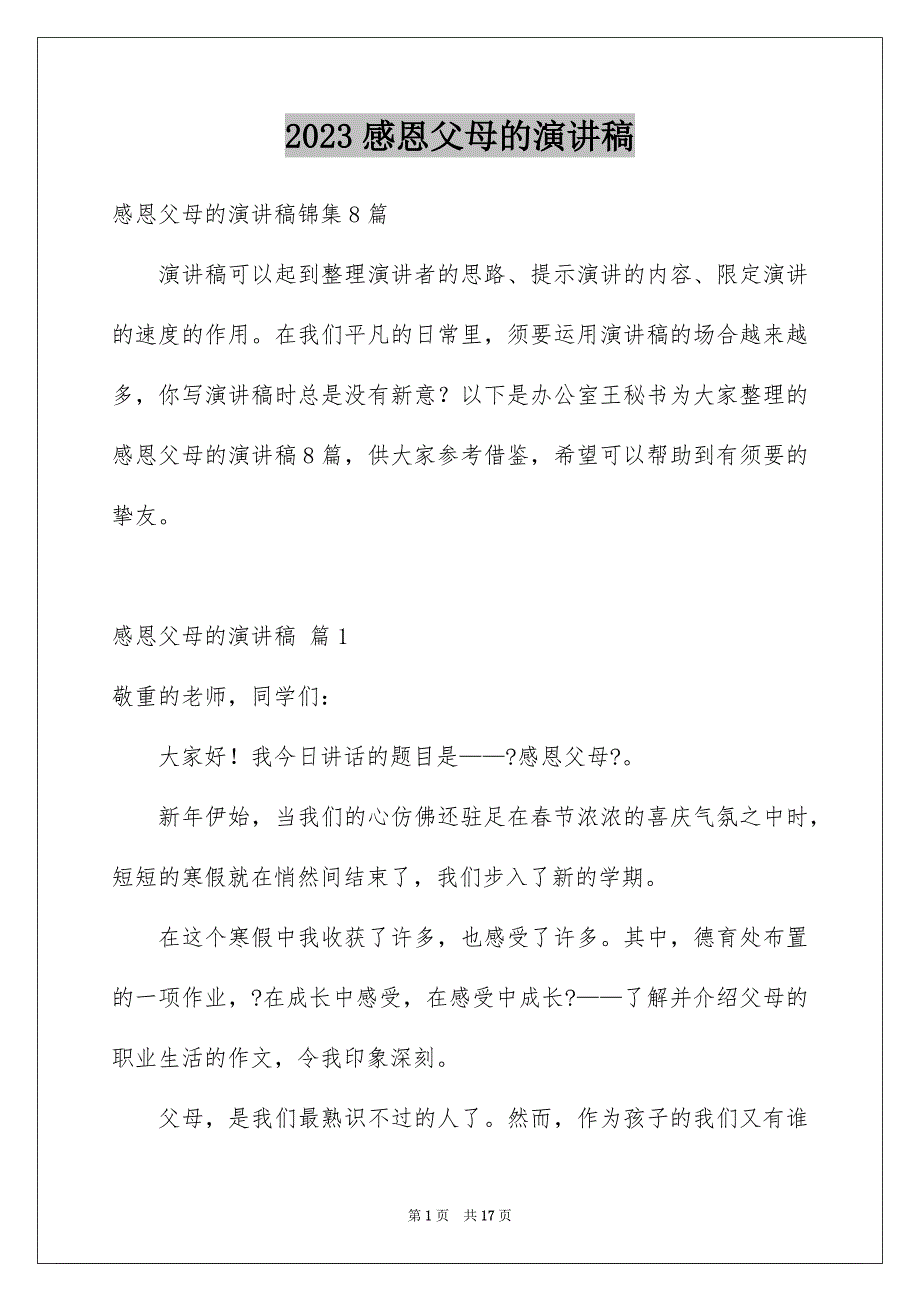 2023感恩父母的演讲稿
感恩父母的演讲稿锦集8篇
演讲稿可以起到整理演讲者的思路、提示演讲的内容、限定演讲
的速度的作用。在我们平凡的日常里，须要运用演讲稿的场合越来越
多，你写演讲稿时总是没有新意？以下是办公室王秘书为大家整理的
感恩父母的演讲稿8篇，供大家参考借鉴，希望可以帮助到有须要的
挚友。
感恩父母的演讲稿 篇1
敬重的老师，同学们：
大家好！我今日讲话的题目是——?感恩父母?。
新年伊始，当我们的心仿佛还驻足在春节浓浓的喜庆气氛之中时，
短短的寒假就在悄然间结束了，我们步入了新的学期。
在这个寒假中我收获了许多，也感受了许多。其中，德育处布置
的一项作业，?在成长中感受，在感受中成长?——了解并介绍父母的
职业生活的作文，令我印象深刻。
父母，是我们最熟识不过的人了。然而，作为孩子的我们又有谁
第1页 共17页